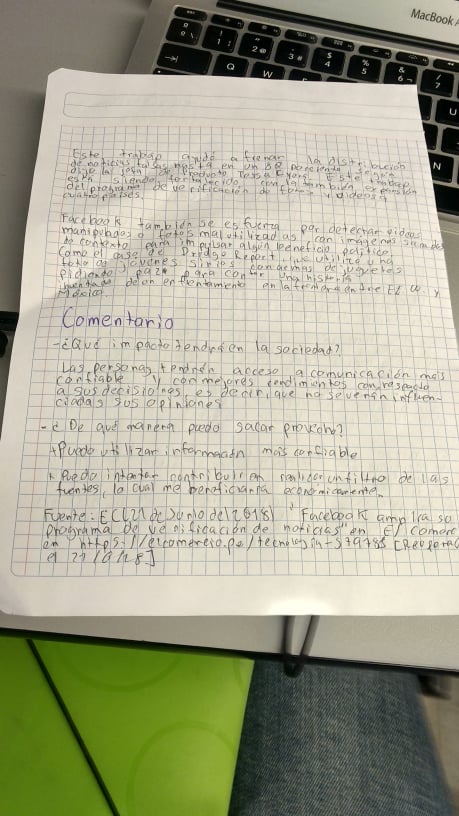 MacBook
Q
W
U
N
Este trabajo ayudó a frenar la distribución
de noticias falsas hasta en un 80 porciento
dijo la jefa de Producto Tessa Lyons. Este trabajo
está siendo fortalecido con la también expansión
del programa de verificación de fotos y videos a
cuatro países.
Facebook también se esfuerza por detectar videos
manipulados o fotos mal utilizadas con imágenes sacadas
de contexto para impulsar algún beneficio político
como el caso de Drudge Report, que utilizó una
foto de jóvenes sirios con armas de juguetes
pidiendo paz para contar una historia
inventada de un enfrentamiento en la frontera entre EE.UU. y
México.
Comentario
-¿Qué impacto tendrá en la sociedad?
Las personas tendrán acceso a comunicación más
confiable y con mejores rendimientos con respecto
a sus decisiones, es decir, que no se verán influen-
ciadas sus opiniones
-¿De qué manera puedo sacar provecho?
+Puedo utilizar información más confiable
+Puedo intentar contribuir en realizar un filtro de las
fuentes, lo cual me beneficiaría económicamente.
Fuente: EC (21 de Junio del 2018) "Facebook amplía su
programa de verificación de noticias" en El comerc
en https://elcomercio.pe/tecnologia-